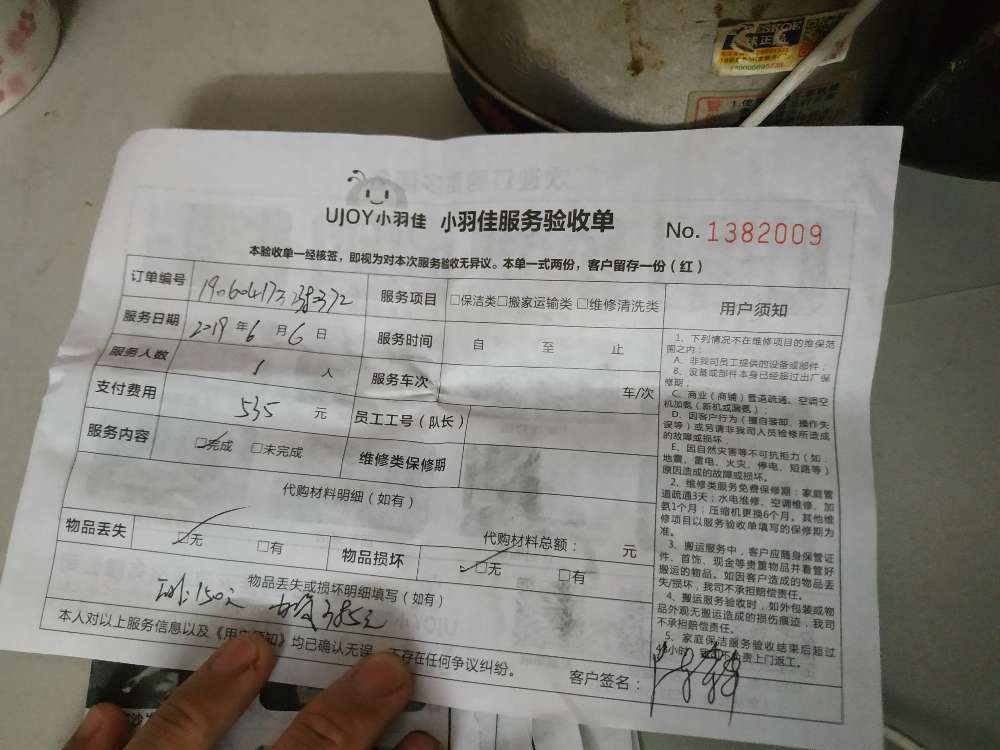 UJOY小羽佳 小羽佳服务验收单
No. 1382009
本验收单一经核签，即视为对本次服务验收无异议。本单一式两份，客户留存一份（红）
订单编号
服务项目 □保洁类□搬家运输类□维修清洗类
服务日期 2019 年 6 月 6 日
服务时间 自 至 止
服务人数 1 人
服务车次 车/次
支付费用 535 元
员工工号（队长）
服务内容 □完成 □未完成
维修类保修期
代购材料明细（如有）
代购材料总额： 元
物品丢失 □无 □有
物品损坏 □无 □有
物品丢失或损坏明细填写（如有）
150元 385元
本人对以上服务信息以及《用户须知》均已确认无误，不存在任何争议纠纷。
客户签名：
用户须知
1、下列情况不在维修项目的维保范
围之内：
A、非我司员工提供的设备或部件；
B、设备或部件本身已经超过出厂保
修期；
C、商业（商铺）管道疏通、空调空
机加氨（新机或漏氨）；
D、因客户行为（擅自装卸、操作失
误等）或另请非我司人员检修所造成
的故障或损坏；
E、因自然灾害等不可抗拒力（如：
地震、雷电、火灾、停电、短路等）
原因造成的故障或损坏。
2、维修类服务免费保修期：家庭管
道疏通3天；水电维修、空调维修、加
氨1个月；压缩机更换6个月。其他维
修项目以服务验收单填写的保修期为
准。
3、搬运服务中，客户应随身保管证
件、首饰、现金等贵重物品并看管好
搬运的物品。如因客户造成的物品丢
失/损坏，我司不承担赔偿责任。
4、搬运服务验收时，如外包装或物
品外观无搬运造成的损伤痕迹，我司
不承担赔偿责任。
5、家庭保洁服务验收结束后超过
小时，
责上门返工。